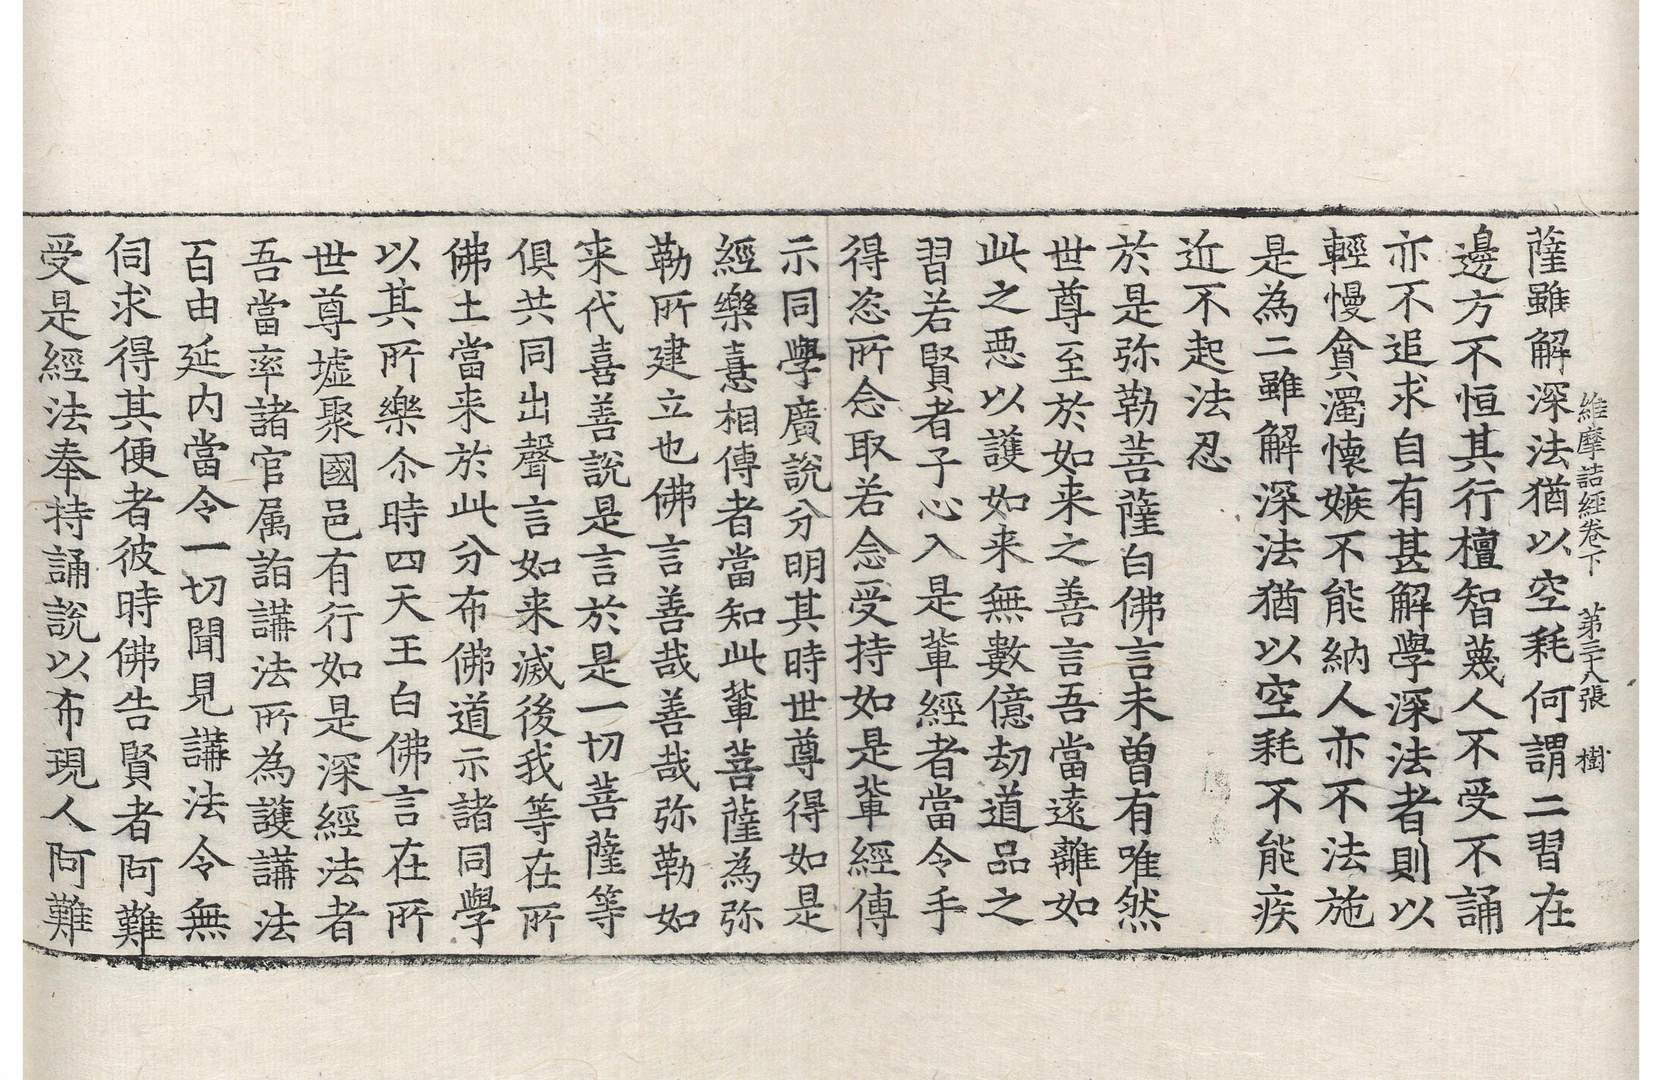 維摩詰經卷下 第三十八張 樹
薩雖解深法猶以空耗何謂二習在
邊方不恒其行檀智蔑人不受不誦
亦不追求自有甚解學深法者則以
輕慢貪濁懷嫉不能納人亦不法施
是為二雖解深法猶以空耗不能疾
近不起法忍
於是弥勒菩薩白佛言未曽有唯然
世尊至於如来之善言吾當遠離如
此之惡以護如来無數億劫道品之
習若賢者子心入是輩經者當令手
得恣所念取若念受持如是輩經傳
示同學廣說分明其時世尊得如是
經樂憙相傳者當知此輩菩薩為弥
勒所建立也佛言善哉善哉弥勒如
来代喜善說是言於是一切菩薩等
俱共同出聲言如来滅後我等在所
佛土當来於此分布佛道示諸同學
以其所樂尒時四天王白佛言在所
世尊墟聚國邑有行如是深經法者
吾當率諸官属詣講法所為護講法
百由延內當令一切聞見講法令無
伺求得其便者彼時佛告賢者阿難
受是經法奉持誦說以布現人阿難